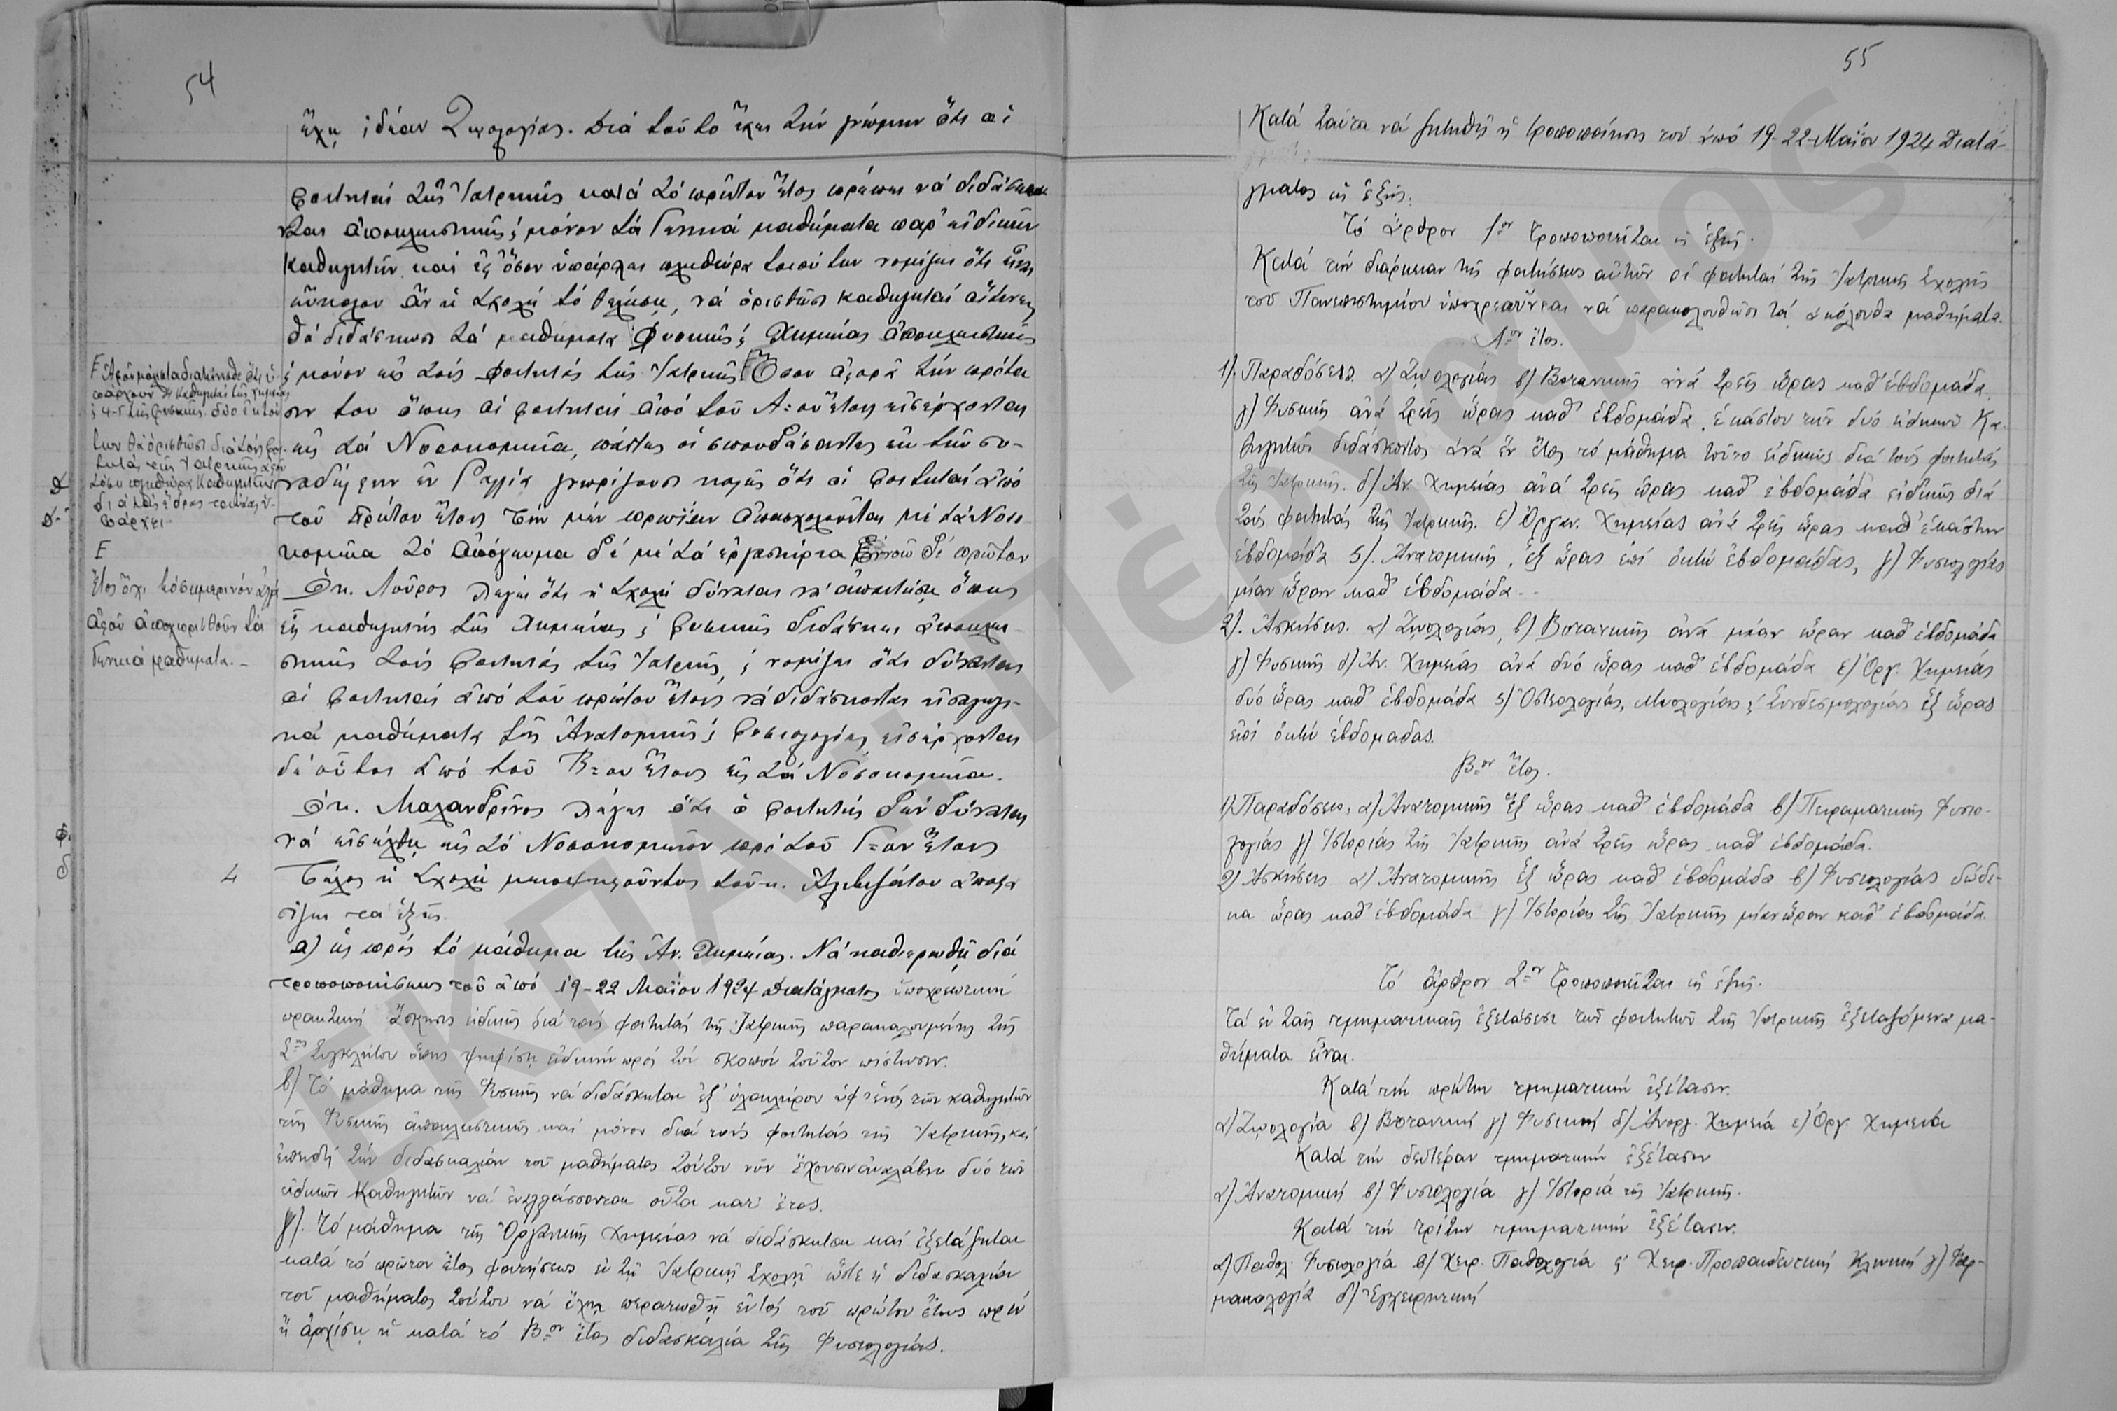 54
ἔχῃ ἰδέαν Ζῳολογίας. Διά τοῦτο ἔχει τήν γνώμην ὅτι οἱ
φοιτηταί τῆς Ἰατρικῆς κατά τό πρῶτον ἔτος πρέπει νά διδάσκων
ται ἀποκλειστικῶς ϛ μόνον τά Γενικά μαθήματα παρ' εἰδικῶν
καθηγητῶν καί ἐφ' ὅσον ὑπάρχει πληθώρα τοιούτων νομίζει ὅτι εἶναι
εὔκολον ἄν ἡ Σχολή τό θελήσῃ, νά ὁρισθῶσι καθηγηταί οἵτινες
θά διδάσκωσι τά μαθήματα Φυσικῆς ϛ Χημείας ἀποκλειστικῶς
ϛ μόνον εἰς τούς φοιτητάς τῆς Ἰατρικῆς Ὅσον ἀφορά τήν πρότα
σιν του ὅπως οἱ φοιτηταί ἀπό τοῦ Α=ου ἔτους εἰσέρχονται
εἰς τά Νοσοκομεῖα, πάντες οἱ σπουδάσαντες ἐκ τῶν συ-
ναδέλφων ἐν Γαλλίᾳ γνωρίζουσι καλῶς ὅτι οἱ φοιτηταί ἀπό
τοῦ πρώτου ἔτους τήν μέν πρωΐαν ἀπασχολοῦνται μέ τά Νοσο
κομεῖα τό ἀπόγευμα δέ μέ τά ἐργαστήρια Ἐννοῶ δέ πρῶτον
Ὁ κ. Λοῦρος λέγει ὅτι ἡ Σχολή δύναται νά ἀπαιτήσῃ ὅπως
εἷς καθηγητής τῆς Χημείας ϛ Φυσικῆς διδάσκει ἀποκλει-
στικῶς τούς φοιτητάς τῆς Ἰατρικῆς, ϛ νομίζει ὅτι δύνανται
οἱ φοιτηταί ἀπό τοῦ πρώτου ἔτους νά διδάσκονται εἰσαγωγι-
κά μαθήματα τῆς Ἀνατομικῆς ϛ Φυσιολογίας εἰσέρχονται
δέ οὗτοι ἀπό τοῦ Β=ου ἔτους εἰς τά Νοσοκομεῖα.
Ὁ κ. Μαλανδρῖνος λέγει ὅτι ὁ φοιτητής δέν δύναται
νά εἰσέλθῃ εἰς τό Νοσοκομεῖον πρό τοῦ Γ=ου ἔτους
4 Τέλος ἡ Σχολή μειοψηφοῦντος τοῦ κ. Ἀλιβιζάτου ἀποφα
σίζει τά ἑξῆς.
α) ὡς πρός τό μάθημα τῆς Ἀν. Χημείας. Νά καθιερωθῇ διά
τροποποιήσεως τοῦ ἀπό 19-22 Μαΐου 1924 Διατάγματος ὑποχρεωτική
πρακτική ἄσκησις εἰδικῶς διά τούς φοιτητάς τῆς Ἰατρικῆς παρακαλουμένης τῆς
Σ=ης Συγκλήτου ὅπως ψηφίσῃ εἰδικήν πρός τόν σκοπόν τοῦτον πίστωσιν.
β) Τό μάθημα τῆς Φυσικῆς νά διδάσκηται ἐξ' ὁλοκλήρου ὑφ' ἑνός τῶν καθηγητῶν
τῆς Φυσικῆς ἀποκλειστικῶς καί μόνον διά τούς φοιτητάς τῆς Ἰατρικῆς, καί
ἐπειδή τήν διδασκαλίαν τοῦ μαθήματος τούτου νῦν ἔχουσιν ἀναλάβει δύο τῶν
εἰδικῶν Καθηγητῶν νά ἐναλλάσσονται οὗτοι κατ' ἔτος.
γ). Τό μάθημα τῆς Ὀργανικῆς Χημείας νά διδάσκηται καί ἐξετάζηται
κατά τό πρῶτον ἔτος φοιτήσεως ἐν τῇ Ἰατρικῇ Σχολῇ ὥστε ἡ διδασκαλία
τοῦ μαθήματος τούτου νά ἔχῃ περατωθῇ ἐντός τοῦ πρώτου ἔτους πρίν
ἤ ἀρχίσῃ ἡ κατά τό Β=ον ἔτος διδασκαλία τῆς Φυσιολογίας.
F
ἔτος ὄχι τό σημερινόν ἀλλά
ἀφοῦ ἀποχωρισθοῦν τά
Γενικά μαθήματα.-
55
Κατά ταῦτα νά ζητηθῇ ἡ τροποποίησις τοῦ ἀπό 19-22 Μαΐου 1924 Διατά-
γματος ὡς ἑξῆς.
Τό ἄρθρον 1ον τροποποιεῖται ὡς ἑξῆς.
Κατά τήν διάρκειαν τῆς φοιτήσεως αὐτῶν οἱ φοιτηταί τῆς Ἰατρικῆς Σχολῆς
τοῦ Πανεπιστημίου ὑποχρεοῦνται νά παρακολουθῶσι τά ἀκόλουθα μαθήματα.
Α=ον ἔτος.
1). Παραδόσεις α) Ζῳολογίας β) Βοτανικῆς ἀνά τρεῖς ὥρας καθ' ἑβδομάδα,
γ) Φυσικῆς ἀνά τρεῖς ὥρας καθ' ἑβδομάδα, ἑκάστου τῶν δύο εἰδικῶν Κα-
θηγητῶν διδάσκοντος ἀνά ἕν ἔτος τό μάθημα τοῦτο εἰδικῶς διά τούς φοιτητάς
τῆς Ἰατρικῆς. δ) Ἀν. Χημείας ἀνά τρεῖς ὥρας καθ' ἑβδομάδα εἰδικῶς διά
τούς φοιτητάς τῆς Ἰατρικῆς. ε) Ὀργαν. Χημείας ἀνά τρεῖς ὥρας καθ' ἑκάστην
ἑβδομάδα ϛ). Ἀνατομικῆς, ἕξ ὥρας ἐπί ὀκτώ ἑβδομάδας, ζ) Φυσιολογίας
μίαν ὥραν καθ' ἑβδομάδα.-
2). Ἀσκήσεις. α) Ζῳολογίας, β) Βοτανικῆς ἀνά μίαν ὥραν καθ' ἑβδομάδα
γ) Φυσικῆς δ) Ἀν. Χημείας ἀνά δυό ὥρας καθ' ἑβδομάδα ε) Ὀργ. Χημείας
δύο ὥρας καθ' ἑβδομάδα ϛ) Ὀστεολογίας, Μυολογίας ϛ Συνδεσμολογίας ἕξ ὥρας
ἐπί ὀκτώ ἑβδομάδας.
Β=ον ἔτος.
1) Παραδόσεις, α) Ἀνατομικῆς ἕξ ὥρας καθ' ἑβδομάδα β) Πειραματικῆς Φυσιο-
λογίας γ) Ἱστορίας τῆς Ἰατρικῆς ἀνά τρεῖς ὥρας καθ' ἑβδομάδα.
2) Ἀσκήσεις α) Ἀνατομικῆς ἕξ ὥρας καθ' ἑβδομάδα β) Φυσιολογίας δώδε-
κα ὥρας καθ' ἑβδομάδα γ) Ἱστορίας τῆς Ἰατρικῆς μίαν ὥραν καθ' ἑβδομάδα.
Τό ἄρθρον 2=ον τροποποιεῖται ὡς ἑξῆς.
Τά ἐν ταῖς τμηματικαῖς ἐξετάσεσι τῶν φοιτητῶν τῆς Ἰατρικῆς ἐξεταζόμενα μα-
θήματα εἶναι.
Κατά τήν πρώτην τμηματικήν ἐξέτασιν.
α) Ζῳολογία β) Βοτανική γ) Φυσική δ) Ἀνοργ. Χημεία ε) Ὀργ Χημεία
Κατά τήν δευτέραν τμηματικήν ἐξέτασιν
α) Ἀνατομική β) Φυσιολογία γ) Ἱστορία τῆς Ἰατρικῆς.
Κατά τήν τρίτην τμηματικήν ἐξέτασιν.
α) Παθολ. Φυσιολογία β) Χειρ. Παθολογία ϛ Χειρ. Προπαιδευτική Κλινική γ) Φαρ-
μακολογία δ) Ἐγχειρητική
ΕΚΠΑ Πέργαμος